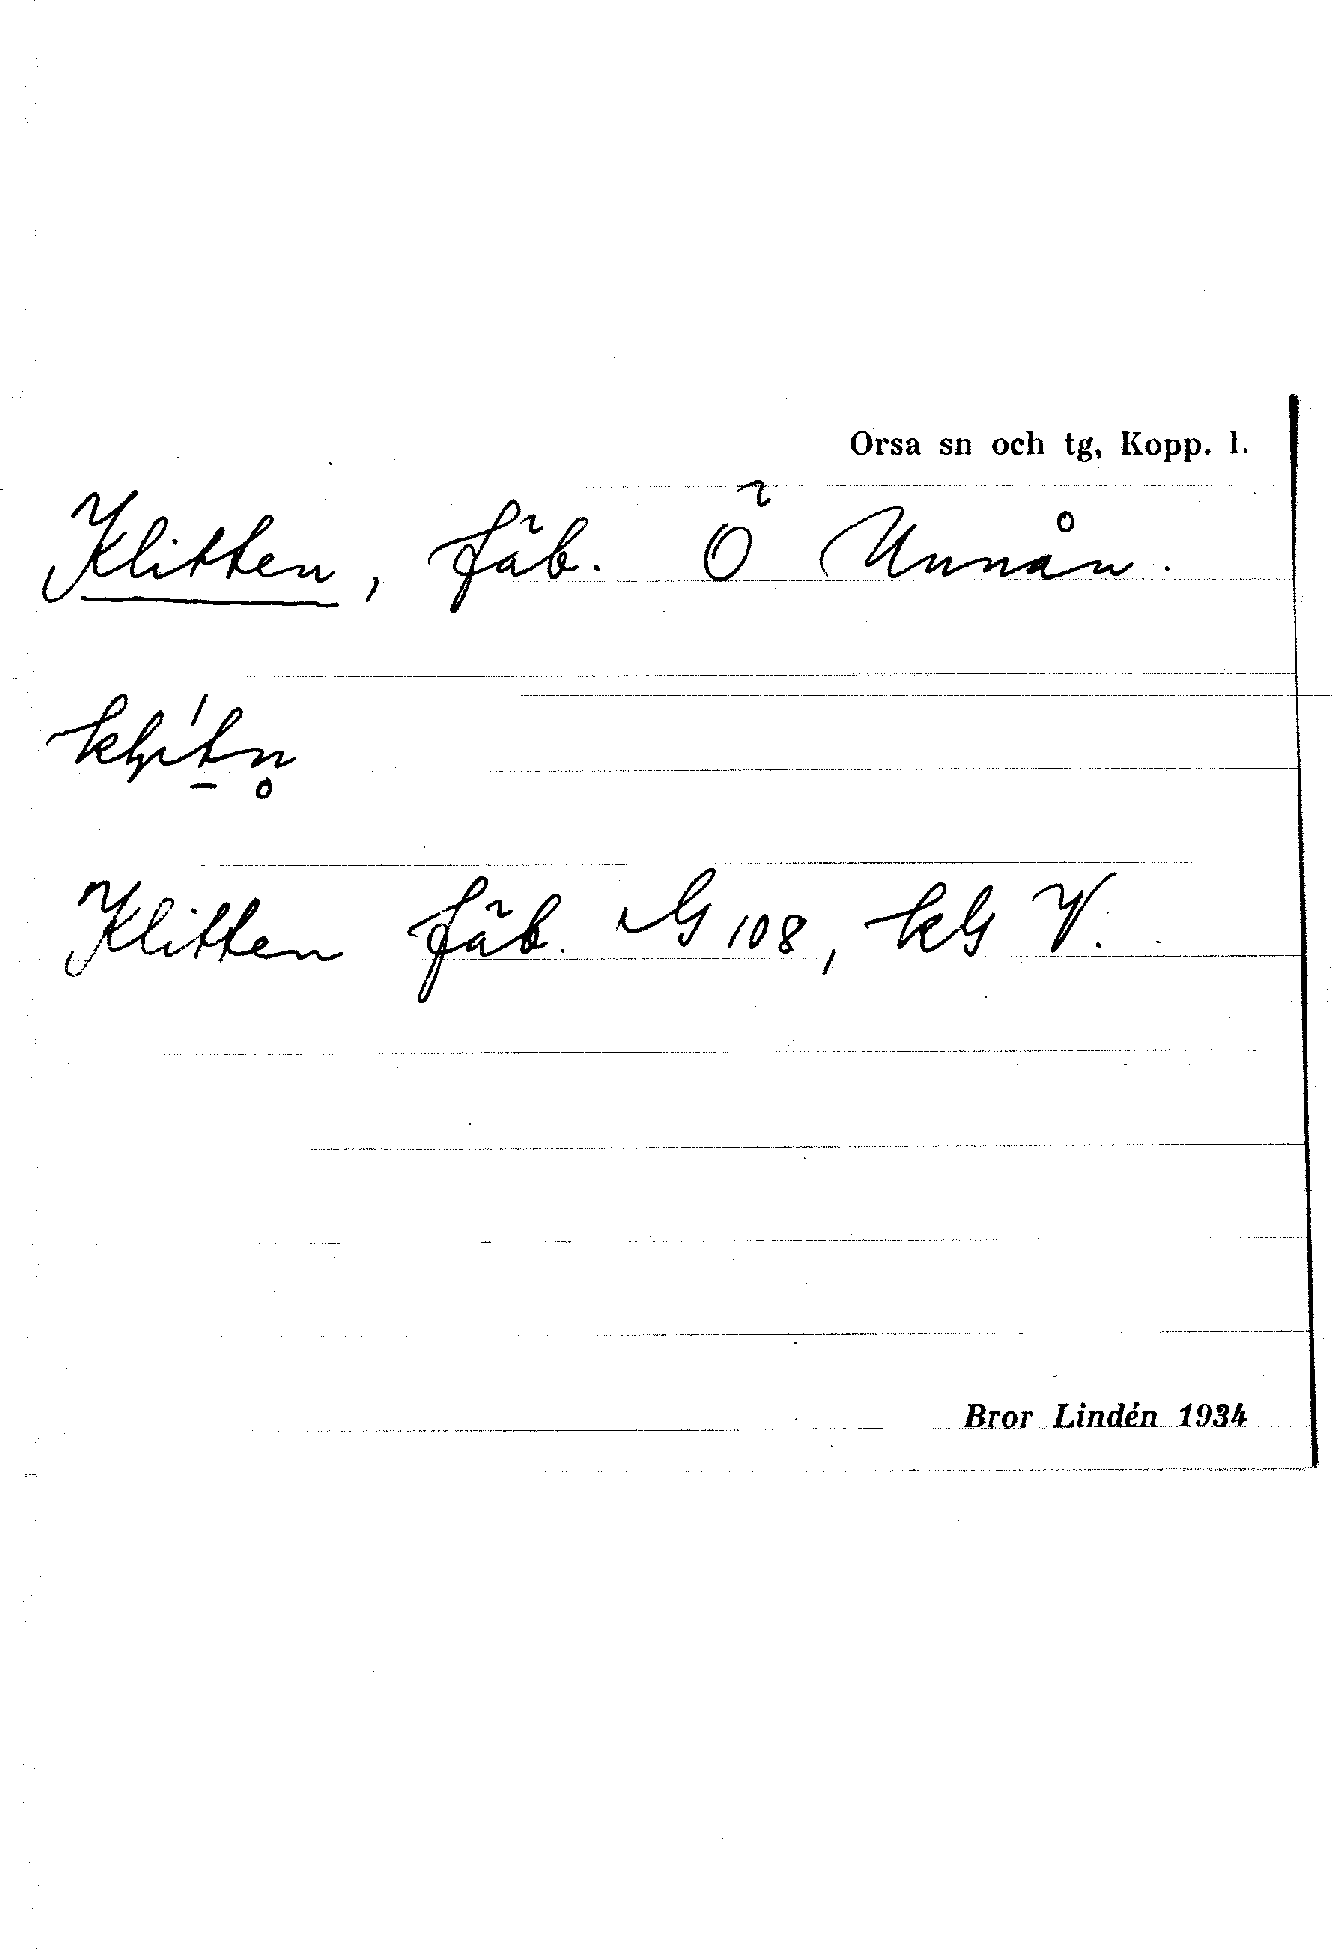 Orsa sn och tg, Kopp. l.
Klitten, fäb. Ö Unnån.
Klitten fäb. G 108, kG V.
Bror Lindén 1934